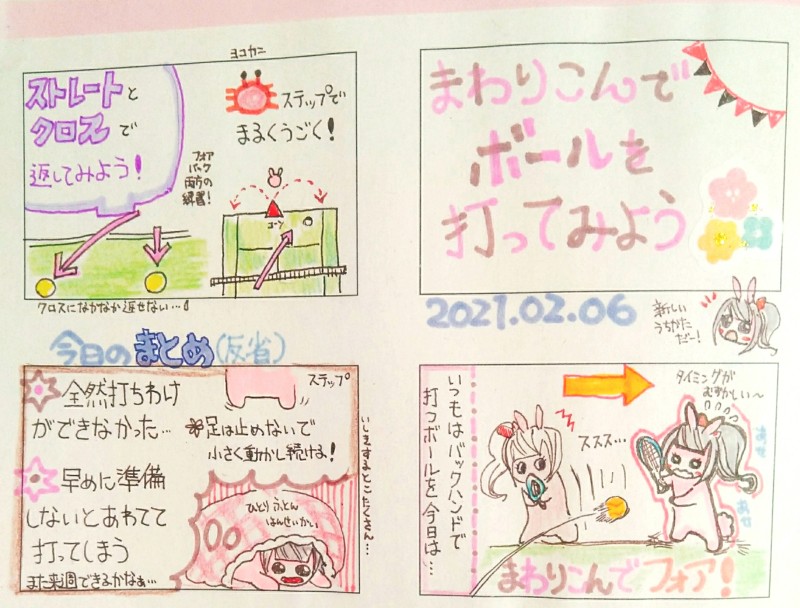 まわりこんで
ボールを
打ってみよう
2021.02.06
新しい
うちかた
だー!
いつもはバックハンドで
打つボールを今日は…
ススス…
タイミングが
むずかしい〜
あせ
あせ
まわりこんでフォア!
ヨコカニ
ストレートと
クロスで
返してみよう!
ステップで
まるくうごく!
フォア
バック
両方の
練習!
コーン
クロスになかなか返せない…
今日のまとめ(反省)
全然打ちわけ
ができなかった…
早めに準備
しないとあわてて
打ってしまう
また来週できるかなぁ…
ステップ
足は止めないで
小さく動かし続けよ!
ひとりふとん
はんせいかい
いしきするとこたくさん…